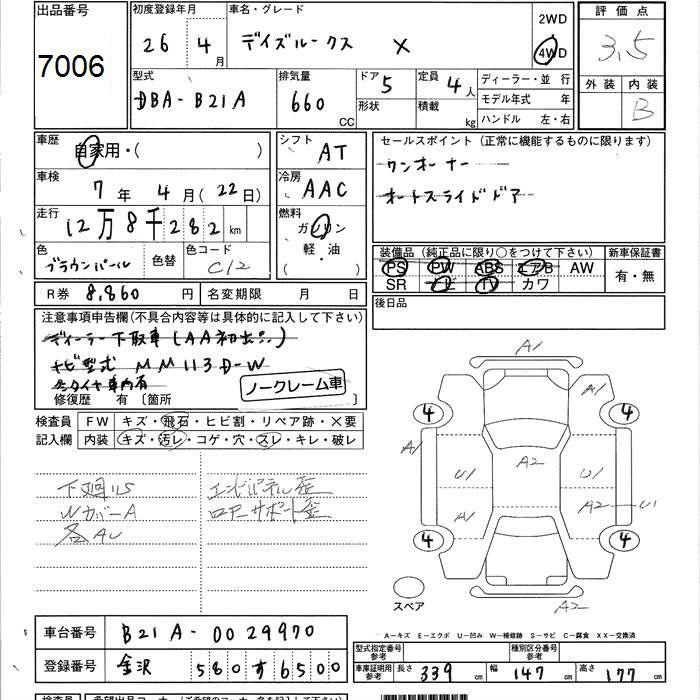 出品番号 7006
初度登録年月 26年 4月
車名・グレード デイズルークス X
2WD
4WD
評価点 3.5
外装 内装 B
型式 DBA-B21A
排気量 660 CC
ドア 5
形状
定員 4人
積載 kg
ディーラー・並行
モデル年式 年
ハンドル 左・右
車歴 自家用・( )
シフト AT
セールスポイント (正常に機能するものに限ります)
ワンオーナー
オートスライドドア
車検 7年 4月(22日)
冷房 AAC
走行 12万8千282km
燃料 ガソリン
軽・油
( )
色 ブラウンパール 色替
色コード C12
装備品 (純正品に限り○をつけて下さい)
PS PW ABS エアB AW
SR ナビ TV カワ
新車保証書 有・無
R券 8,860円
名変期限 月 日
後日品
注意事項申告欄(不具合内容等は具体的に記入して下さい)
ディーラー下取車(AA初出品)
ナビ型式 MM113D-W
冬タイヤ車内有
ノークレーム車
修復歴 有 〔箇所 〕
検査員記入欄
FW キズ・飛石・ヒビ割・リペア跡・×要
内装 キズ・汚レ・コゲ・穴・スレ・キレ・破レ
下廻りS
WカバーA
各AU
エンドパネル歪
ロアーサポート歪
A1
4 A1 4
A1 U1 A2 U1
A1 A2 U1
4 4
スペア A2
A－キズ E－エクボ U－凹み W－補修跡 S－サビ C－腐食 XX－交換済
車台番号 B21A-0029970
登録番号 金沢 580 す 6500
型式指定番号 参考
種別区分番号 参考
車庫証明用 参考 長さ 339cm 幅 147cm 高さ 177cm
検査員
希望出品コーナー